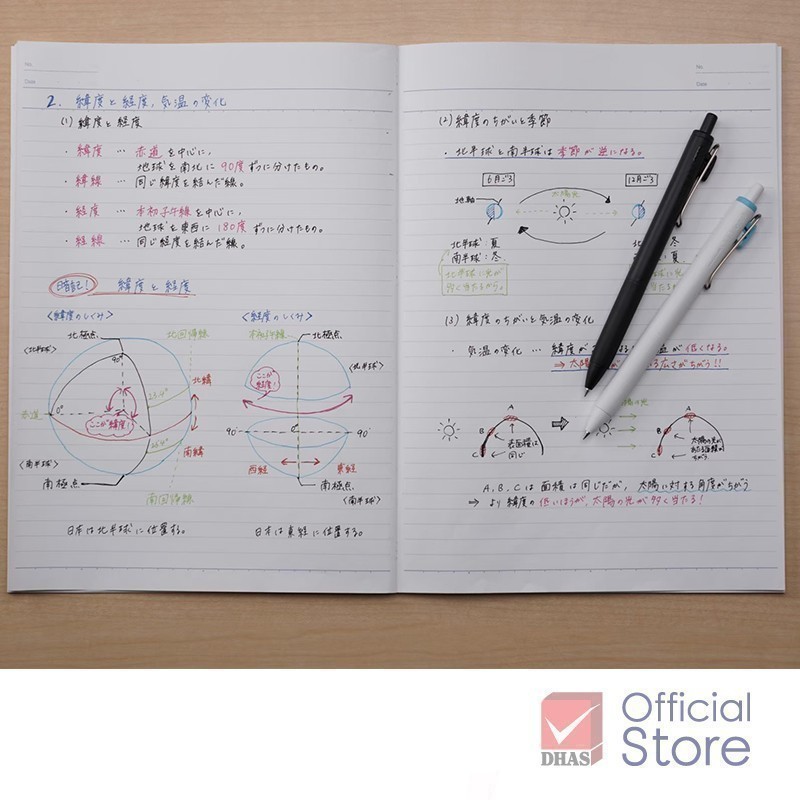 No.
Date
2. 緯度と経度、気温の変化
(1) 緯度と経度
・緯度 … 赤道を中心に、
地球を南北に90度ずつに分けたもの。
・緯線 … 同じ緯度を結んだ線。
・経度 … 本初子午線を中心に、
地球を東西に180度ずつに分けたもの。
・経線 … 同じ経度を結んだ線。
暗記! 緯度と経度
<緯度のしくみ>
北極点
北回帰線
<北半球>
90°
北緯
23.4°
赤道
0°
ここが緯度!
23.4°
南緯
<南半球>
南極点
南回帰線
日本は北半球に位置する。
<経度のしくみ>
本初子午線
北極点
<北半球>
ここが経度!
90°
0°
90°
西経
東経
南極点
<南半球>
日本は東経に位置する。
No.
Date
(2) 緯度のちがいと季節
・北半球と南半球は季節が逆になる。
6月ごろ
12月ごろ
太陽光
地軸
北半球:夏
南半球:冬
北半球に光が
多く当たるから。
冬
夏
(3) 緯度のちがいと気温の変化
・気温の変化 … 緯度が
なる
が低くなる。
⇒ 太陽
る広さがちがう!!
の光
A
B
C
表面積は
同じ
A
B
C
太陽の光が
あたる面積が
ちがう
A、B、Cは面積は同じだが、太陽に対する角度がちがう
⇒ より緯度の低いほうが、太陽の光が多く当たる!
DHAS
Official
Store